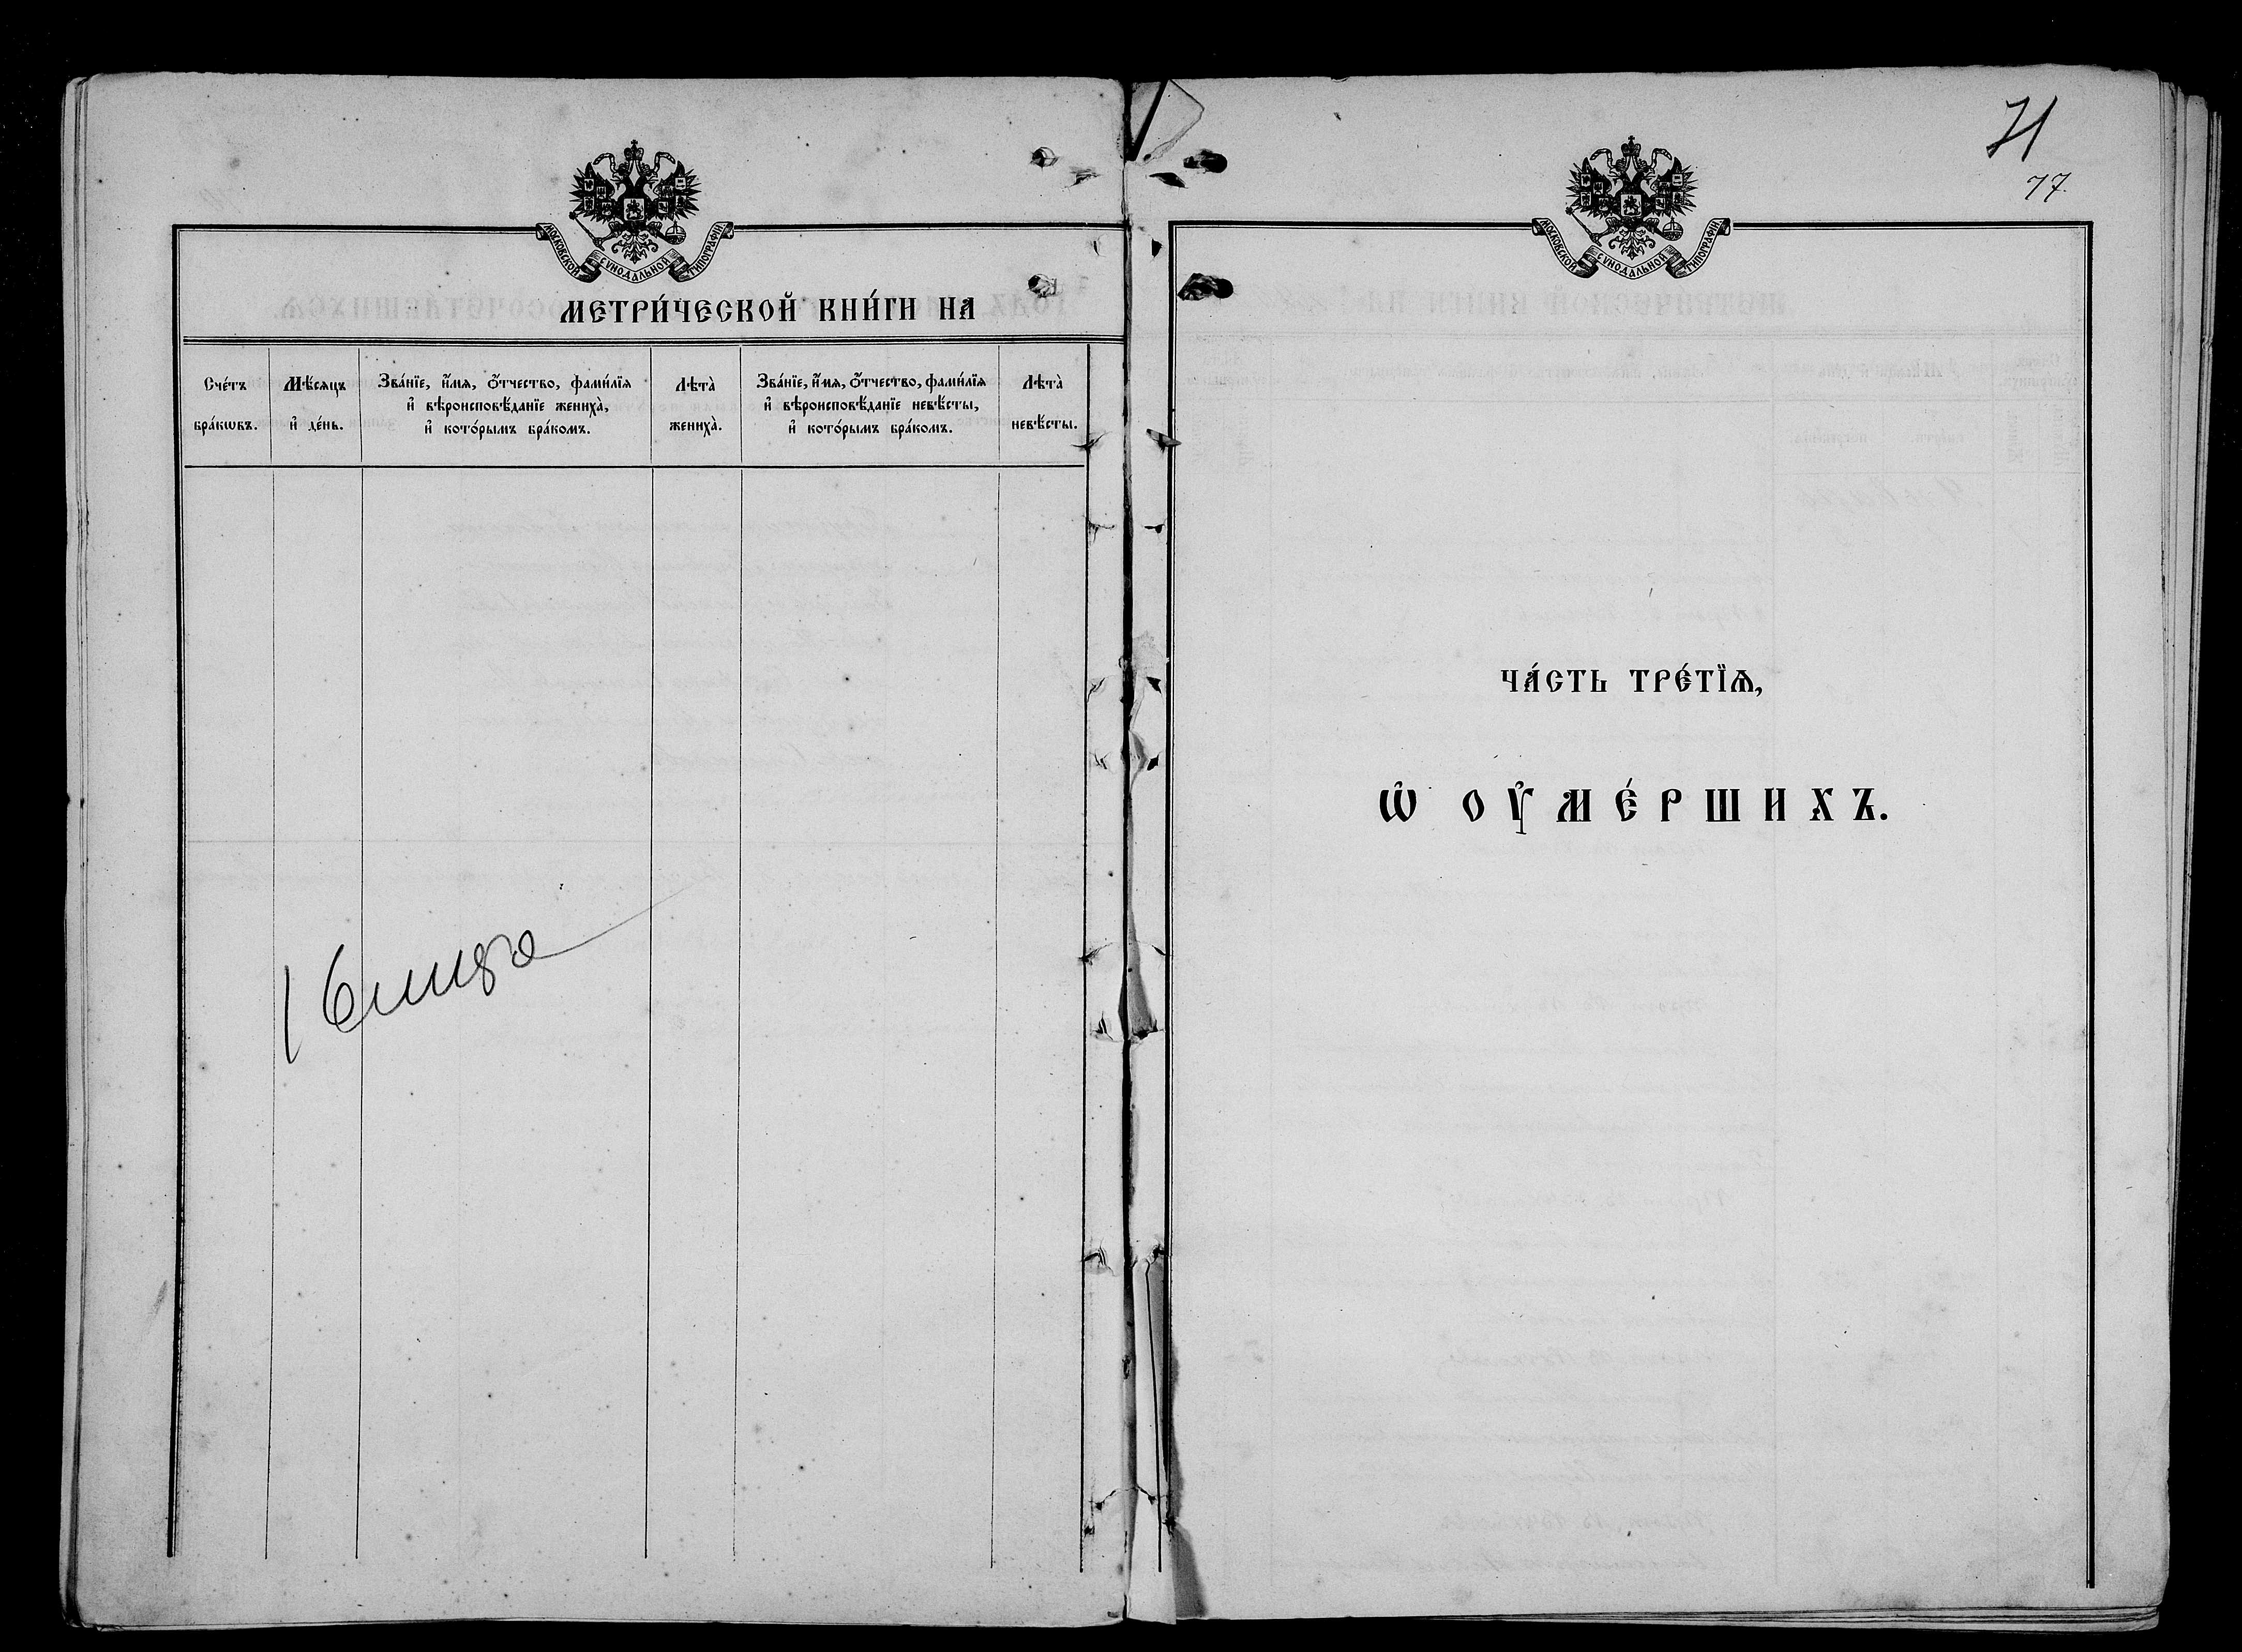 МОСКОВСКОЙ СѴНОДАЛЬНОЙ ТИПОГРАФІИ
МЕТРИ́ЧЕСКОЙ КНИ́ГИ НА
Сче́тъ бра́кѡвъ.
Мѣ́сяцъ и҆ де́нь.
Зва́нїе, и҆́мя, ѻ҆́тчество, фами́лїя
и҆ вѣроисповѣ́данїе жениха̀,
и҆ кото́рымъ бра́комъ.
Лѣта̀ жениха̀.
Зва́нїе, и҆́мя, ѻ҆́тчество, фами́лїя
и҆ вѣроисповѣ́данїе невѣ́сты,
и҆ кото́рымъ бра́комъ.
Лѣта̀ невѣ́сты.
71
77
МОСКОВСКОЙ СѴНОДАЛЬНОЙ ТИПОГРАФІИ
ЧА́СТЬ ТРЕ́ТЇѦ,
Ѡ҆ ОУ҆МЕ́РШИХЪ.